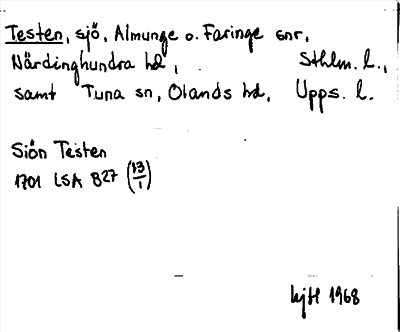 Testen, sjö, Almunge o. Faringe snr,
Närdinghundra hd, Sthlm. l.,
samt Tuna sn, Olands hd, Upps. l.
Siön Testen
1701 LSA B27 (13/1)
1968